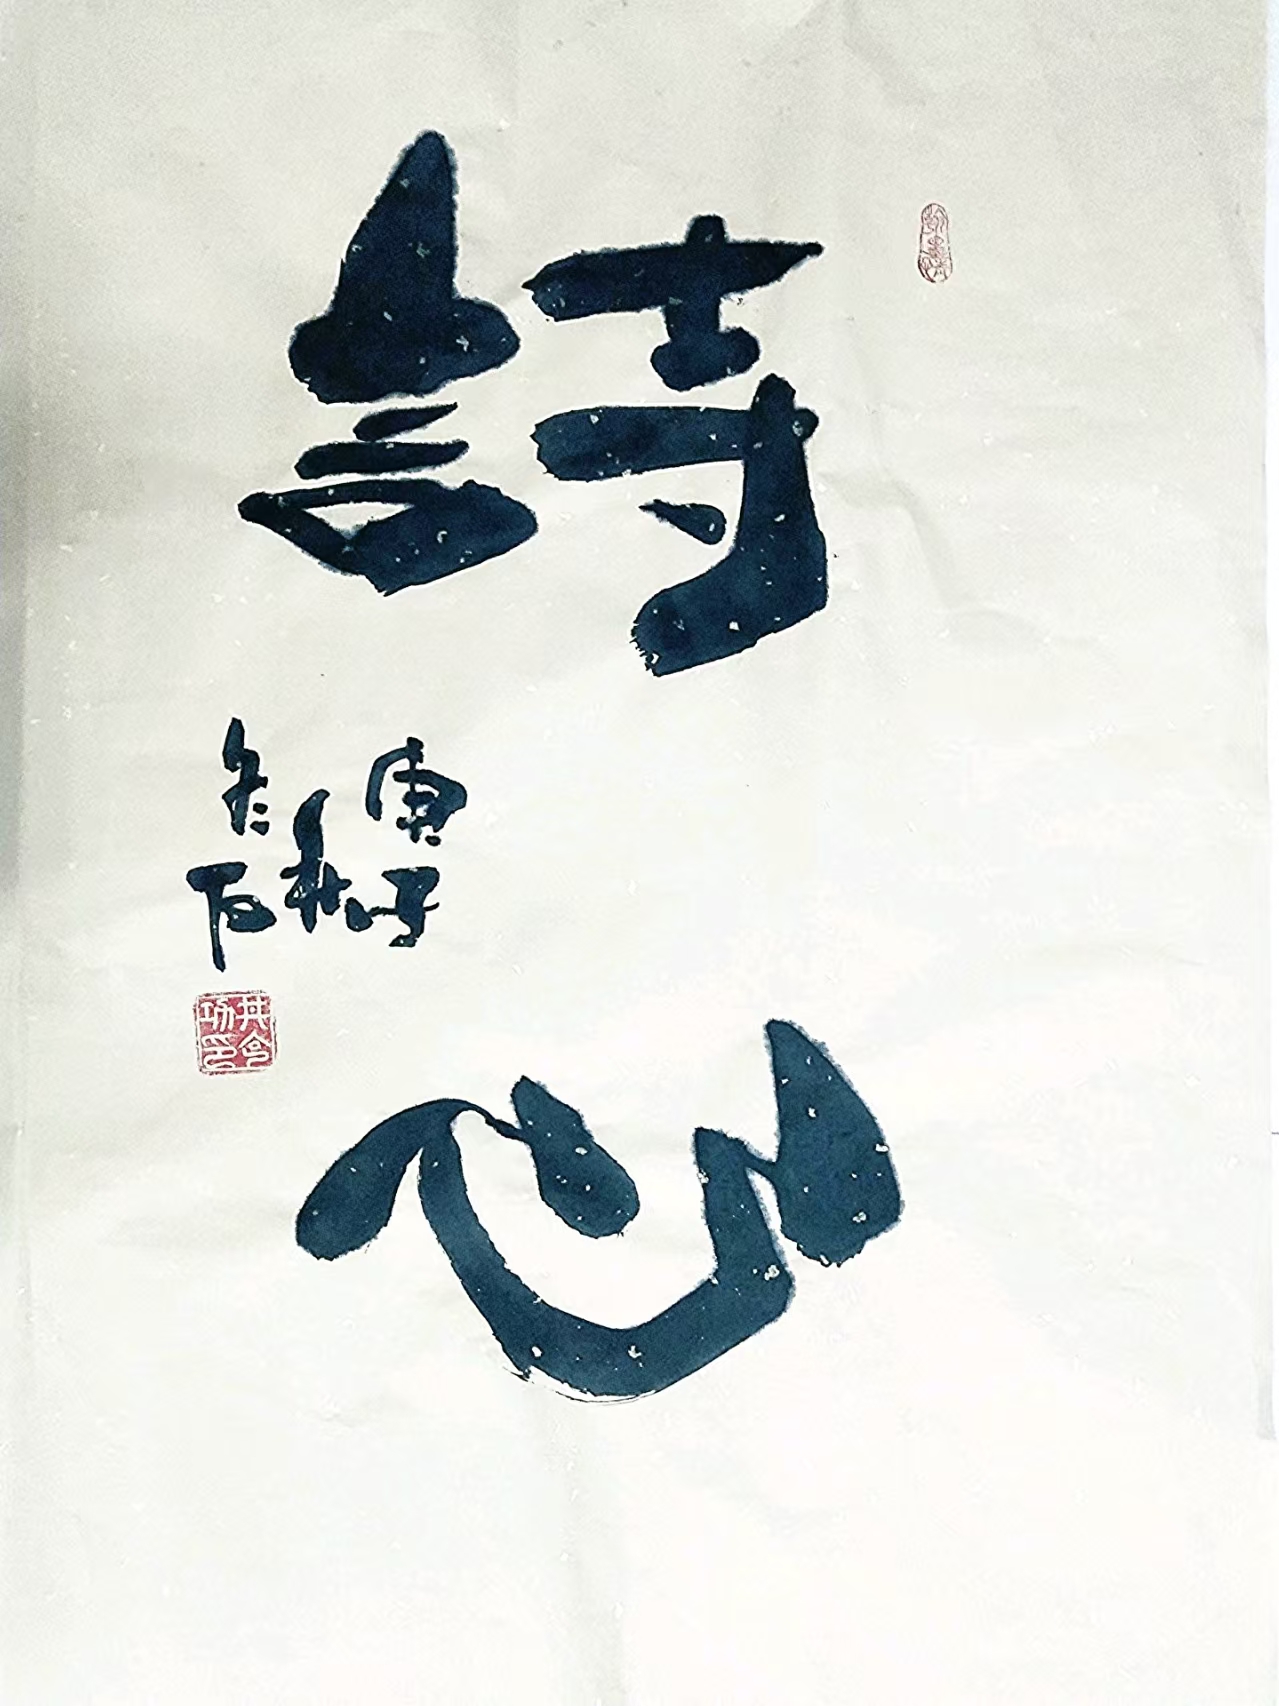 詩心
庚子
秋
冬石